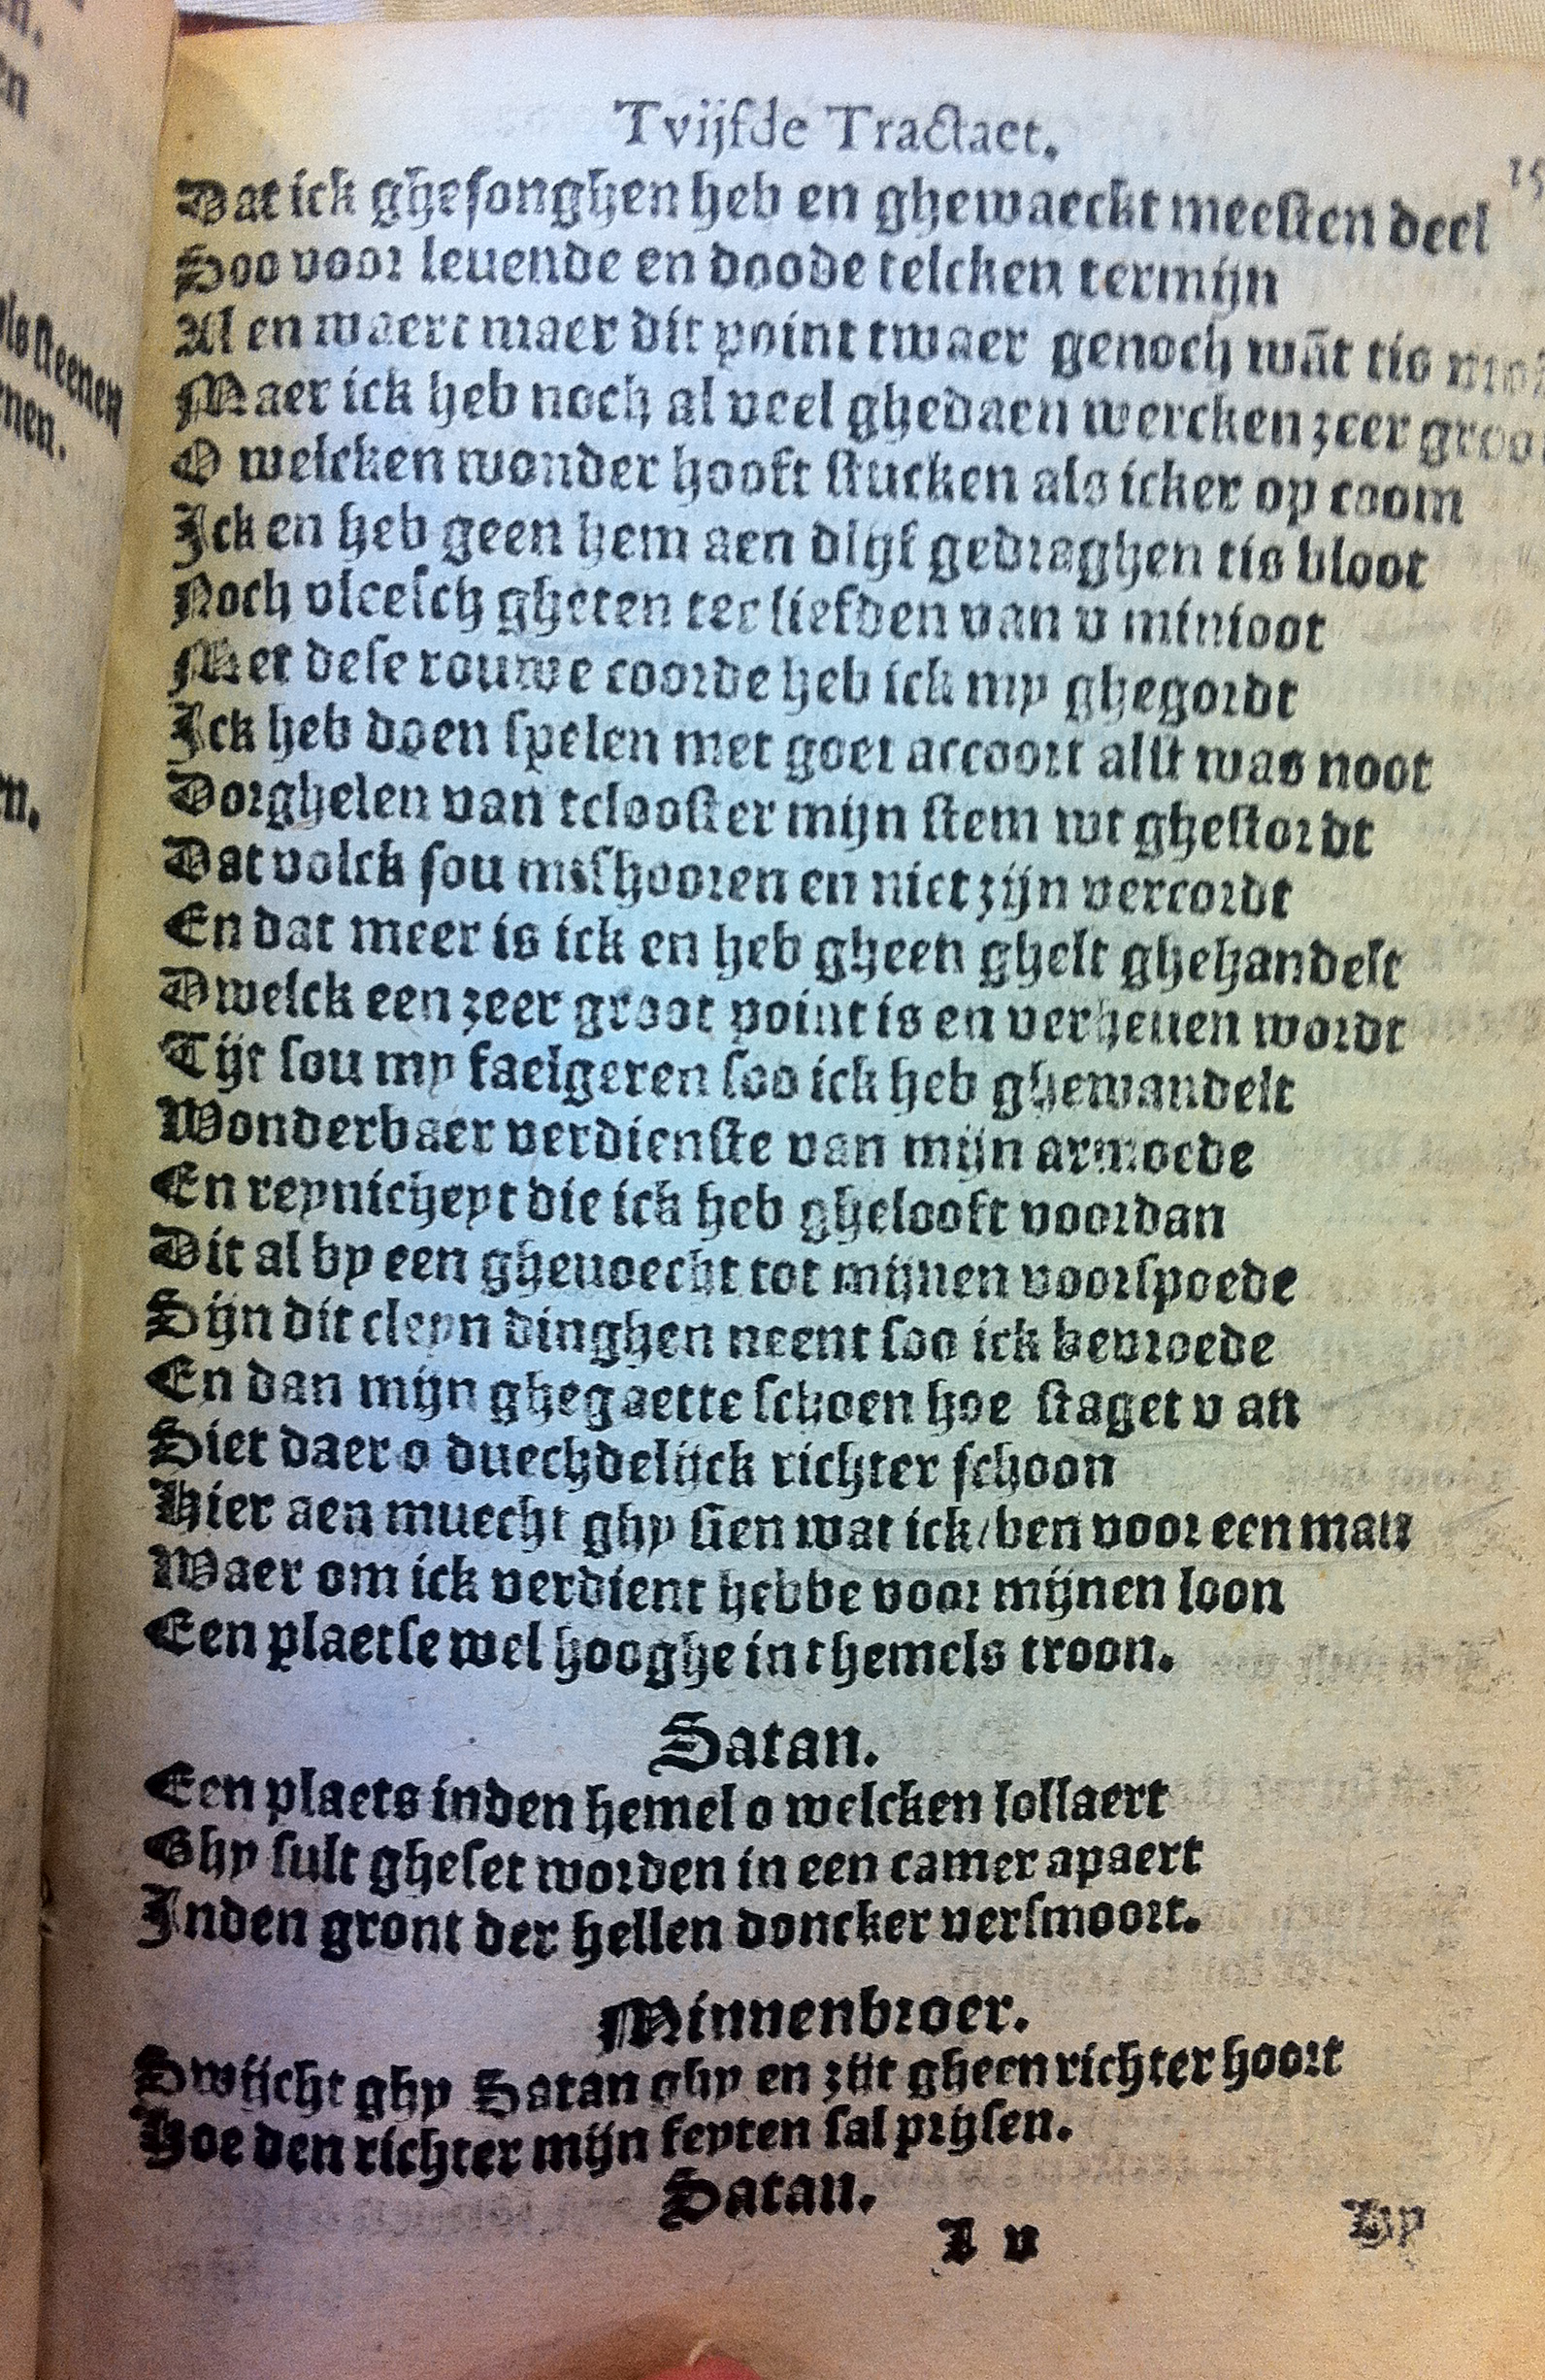 Tvijfde Tractaet.
15
Dat ick ghesonghen heb en ghewaeckt meesten deel
Soo voor leuende en doode telcken termijn
Al en waert maer dit point twaer genoch wāt tis
Maer ick heb noch al veel ghedaen wercken zeer groo
O welcken wonder hooft stucken als icker op coom
Ick en heb geen hem aen dlijf gedraghen tis bloot
Noch vleesch gheten ter liefden van v minioot
Met dese rouwe coorde heb ick my ghegordt
Ick heb doen spelen met goet accoort allt was noot
Dorghelen van tclooster mijn stem wt ghestordt
Dat volck sou mis hooren en niet zijn vercordt
En dat meer is ick en heb gheen ghelt ghehandelt
Dwelck een zeer groot point is en verheuen wordt
Tijt sou my faelgeren soo ick heb ghewandelt
Wonderbaer verdienste van mijn armoede
En reynicheyt die ick heb ghelooft voordan
Dit al by een gheuoecht tot mijnen voorspoede
Sijn dit cleyn dinghen neent soo ick bevroede
En dan mijn ghegaette schoen hoe staget v an
Siet daer o duechdelijck richter schoon
Hier aen muecht ghy sien wat ick ben voor een man
Waer om ick verdient hebbe voor mijnen loon
Een plaetse wel hooghe in themels troon.
Satan.
Een plaets inden hemel o welcken lollaert
Ghy sult gheset worden in een camer apaert
Inden gront der hellen doncker versmoort.
Minnenbroer.
Swijcht ghy Satan ghy en zijt gheen richter hoort
Hoe den richter mijn feyten sal prijsen.
Satan.
I v
Hy
als steenen
enen.
en.